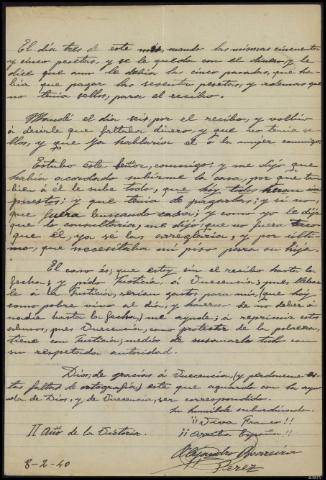 El dia tres d este mes, mando las mismas cincuenta
y cinco pesetas, y se la queda con el dinero, y le
dice que aun le debia las cinco pasadas, que ha-
bia que pagar las sesenta pesetas, y ademas que
no tenia sellos, para el recibo.
Mandé el dia seis, por el recibo, y volbio
á decirle que faltaba dinero, y que no tenia se-
llos, y que ya hablaria el ó la mujer conmigo.
Estubo este Señor, conmigo; y me dijo que
habia acordado subirme la casa, por que tam-
bien á él le sube todo, que hay todo
puestos; y que tenia de pagarlas; y si no,
que fuera buscando casa; y como yo le dije
que lo consultaria, me dijo que no fuera
que él, ya se las arreglaria, y por ulti-
mo, que necesitaba mi piso para su hija.
El caso es, que estoy sin el recibo hasta la
fecha; y pido Justicia, á Vuecencia; pues
le á la Justicia, serian gastos, para mi, (que hoy
como pobre vivo al dia, y fuera de no deber á
nadie hasta la fecha) me ayude; á reprimir estos
abusos, pues Vuecencia, como protector de la pobreza,
tiene con Justicia; medios de subsanarlo todo con
su respetada autoridad.
Dios, de gracias á Vuecencia (y perdone es-
tas faltas de ortografia) este que aguanta con la ayu-
da de Dios, y de Vuecencia, ser correspondido.
Su humilde subordinado.
¡¡Viva Franco!!
II Año de la Victoria. ¡¡Arriba España!!
Alejandro Barreira
Perez
8-2-40